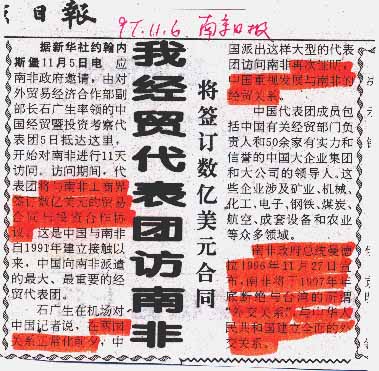 日報
97.11.6 南京日报
我经贸代表团访南非
将签订数亿美元合同
据新华社约翰内
斯堡11月5日电 应
南非政府邀请，由对
外贸易经济合作部副
部长石广生率领的中
国经贸暨投资考察代
表团5日抵达这里，
开始对南非进行11天
访问。访问期间，代
表团将与南非工商界
签订数亿美元的贸易
合同与投资合作协
议。这是中国与南非
自1991年建立接触以
来，中国向南非派遣
的最大、最重要的经
贸代表团。
石广生在机场对
中国记者说，在两国
关系正常化前夕，中
国派出这样大型的代表
团访问南非再次证明，
中国重视发展与南非的
经贸关系。
中国代表团成员包
括中国有关经贸部门负
责人和50余家有实力和
信誉的中国大企业集团
和大公司的领导人。这
些企业涉及矿业、机械、
化工、电子、钢铁、煤炭、
航空、成套设备和农业
等众多领域。
南非政府总统曼德
拉1996年11月27日宣
布，南非将于1997年年
底断绝与台湾的所谓
“外交关系”，与中华人
民共和国建立全面的外
交关系。